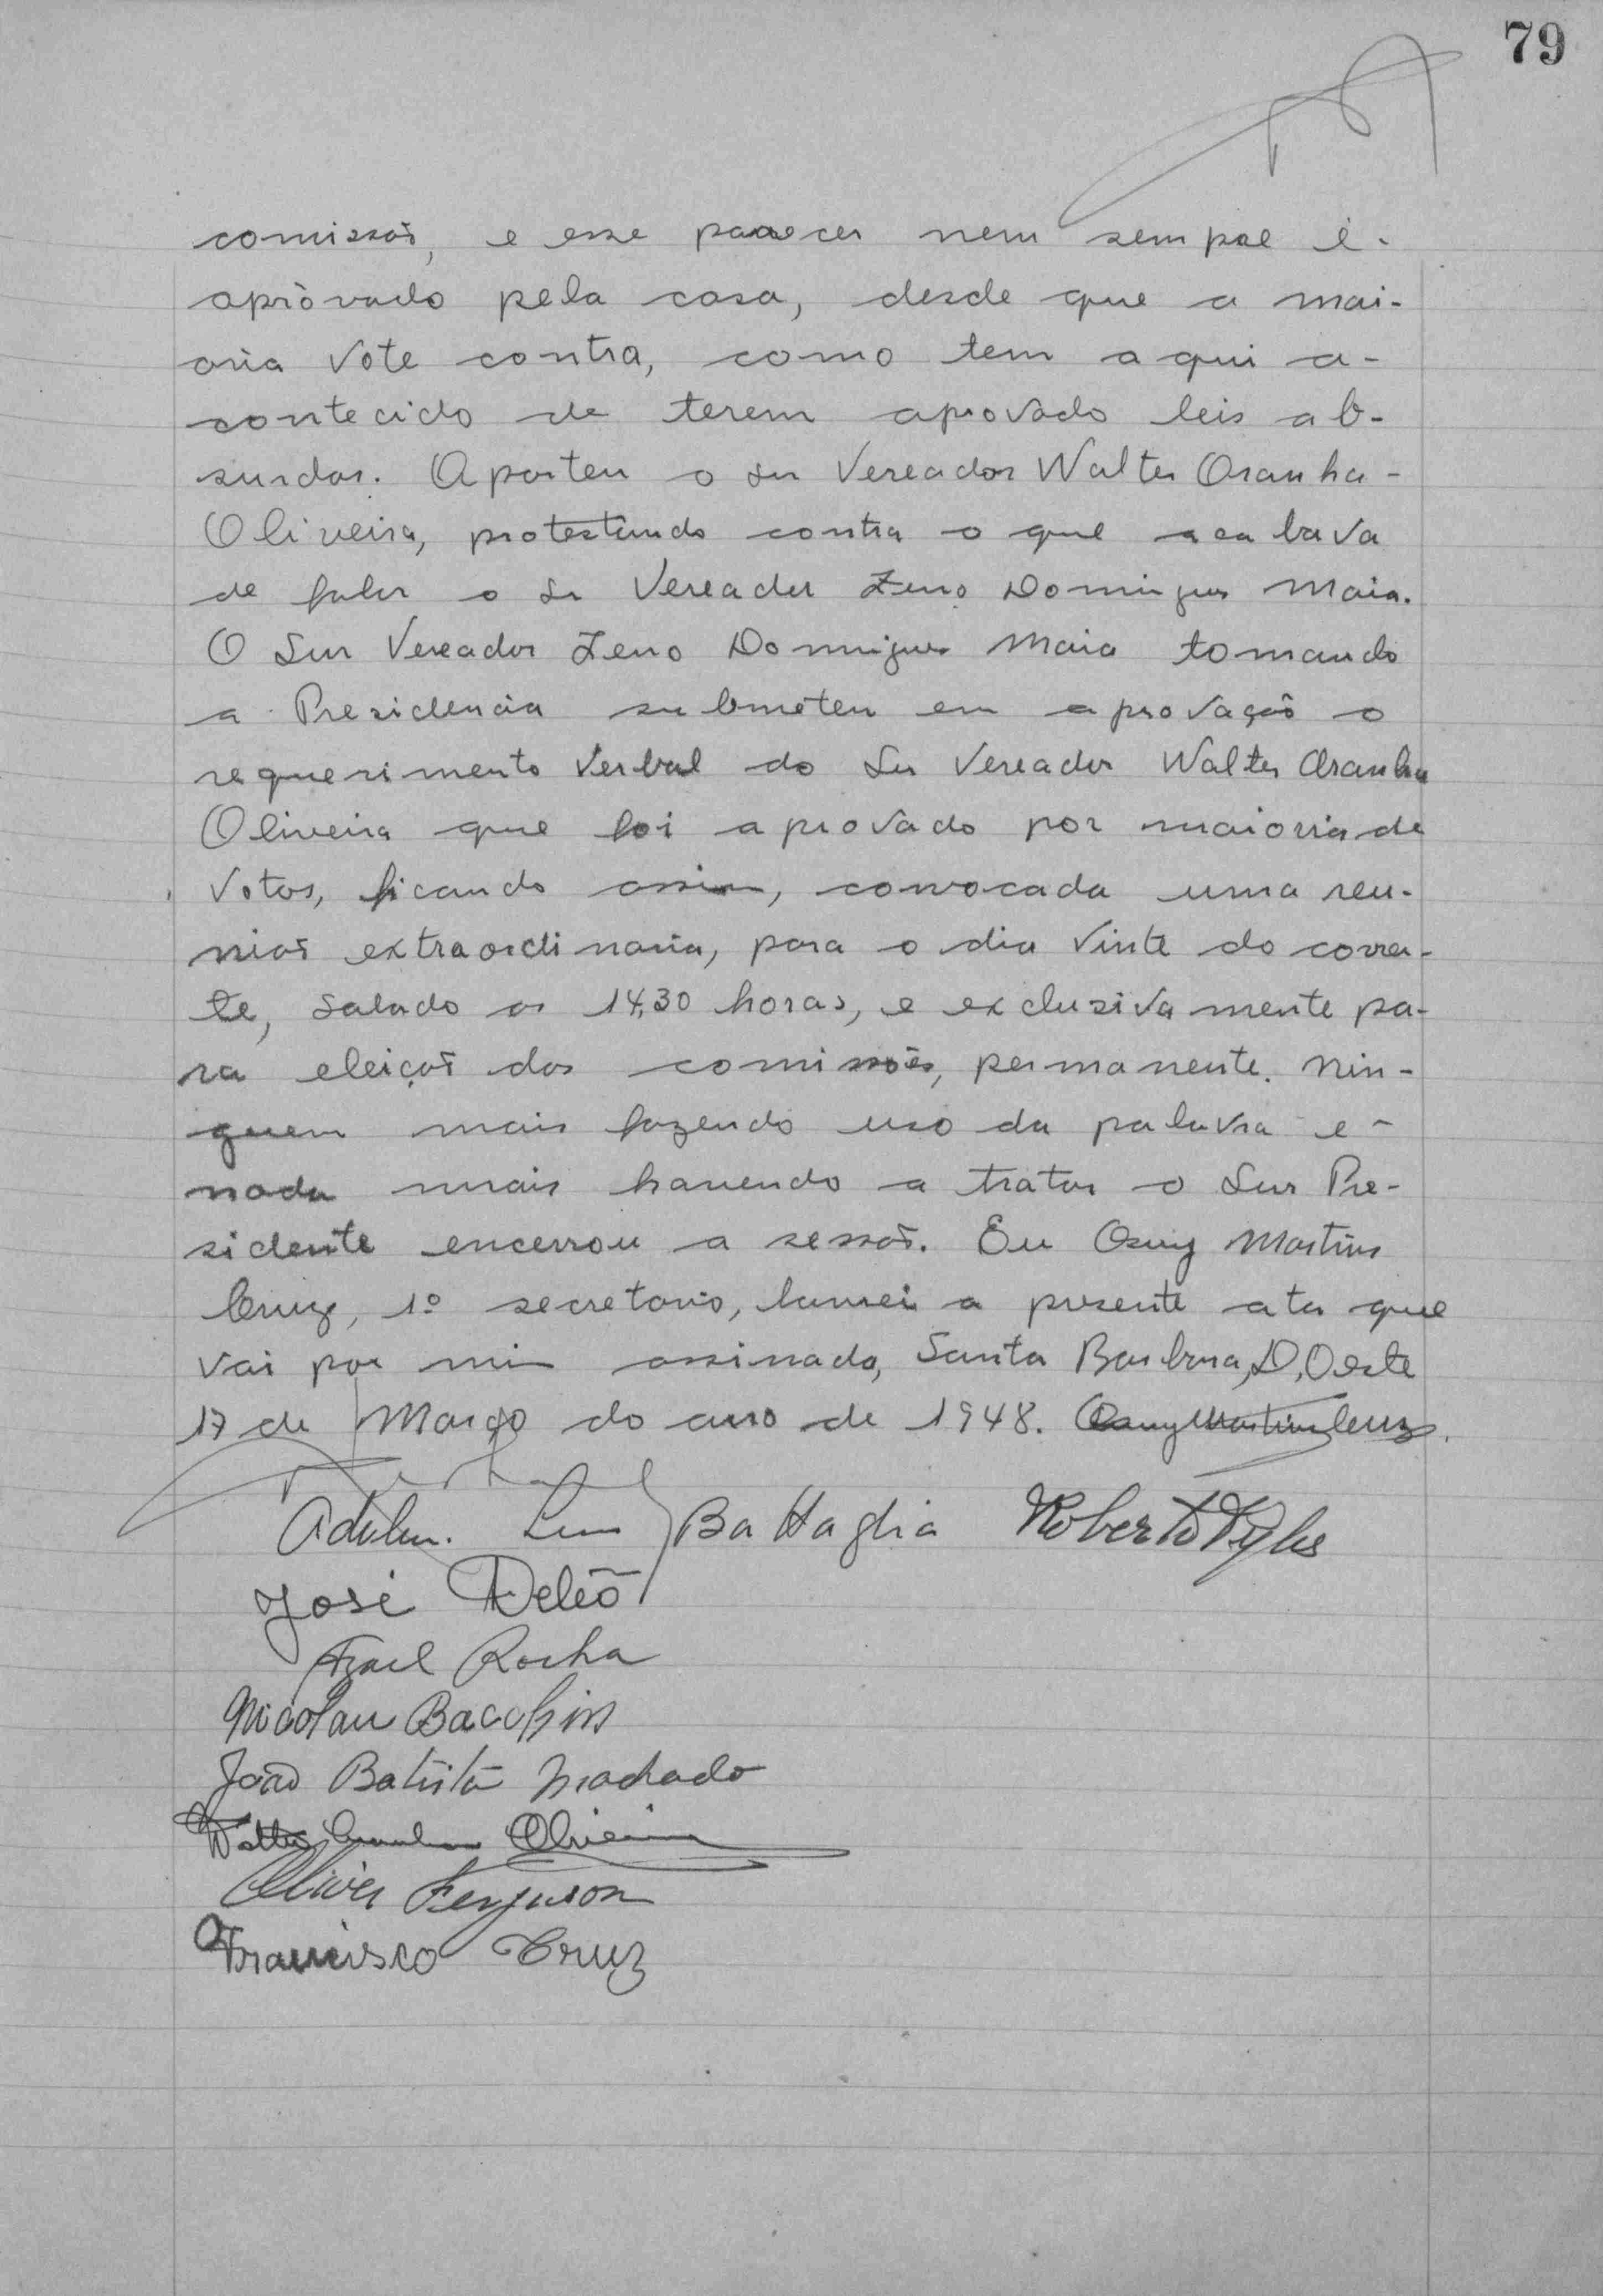 79
comissaõ, e esse parecer nem sempre é-
aprovado pela casa, desde que a mai-
oria vote contra, como tem aqui a-
contecido de terem aprovado leis ab-
surdas. Aparteu o Snr Vereador Walter Aranha-
Oliveira, protestando contra o que acabava
de falar o Sr Vereador Zeno Domingues Maia.
O Snr Vereador Zeno Domingues Maia tomando
a Presidencia submeteu em aprovação o
requerimento verbal do Snr Vereador Walter Aranha
Oliveira que foi aprovado por maioria de
votos, ficando assim, convocada uma reu-
niaõ extraordinaria, para o dia vinte do corren-
te, sabado as 14,30 horas, e exclusivamente pa-
ra eleiçaõ das comissões, permanente. Nin-
guem mais fazendo uso da palavra e-
nada mais havendo a tratar o Snr Pre-
sidente encerrou a sessaõ. Eu Osny Martins
Cruz, 1º secretario, lavrei a presente ata que
vai por mim assinado, Santa Barbara, D, Oeste
17 de Março do ano de 1948. Osny Martins Cruz.
Battaglia Roberto
José Deleõ
Rocha
Nicolau
João Batista Machado
Walter Aranha Oliveira
Oliver Ferguson
Francisco Cruz